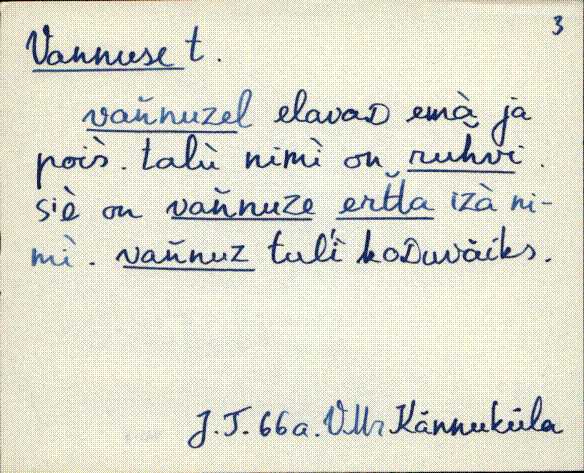 3
Vannuse t.
vañ̆nuzel elavaD emà ja
poiš. talù nimì on ruh̆vi.
siè on vañ̆nuze ertla izà ni-
mì. vañ̆nuz tuli koDuväiks.
J.T. 66a. VMr Kännuküla